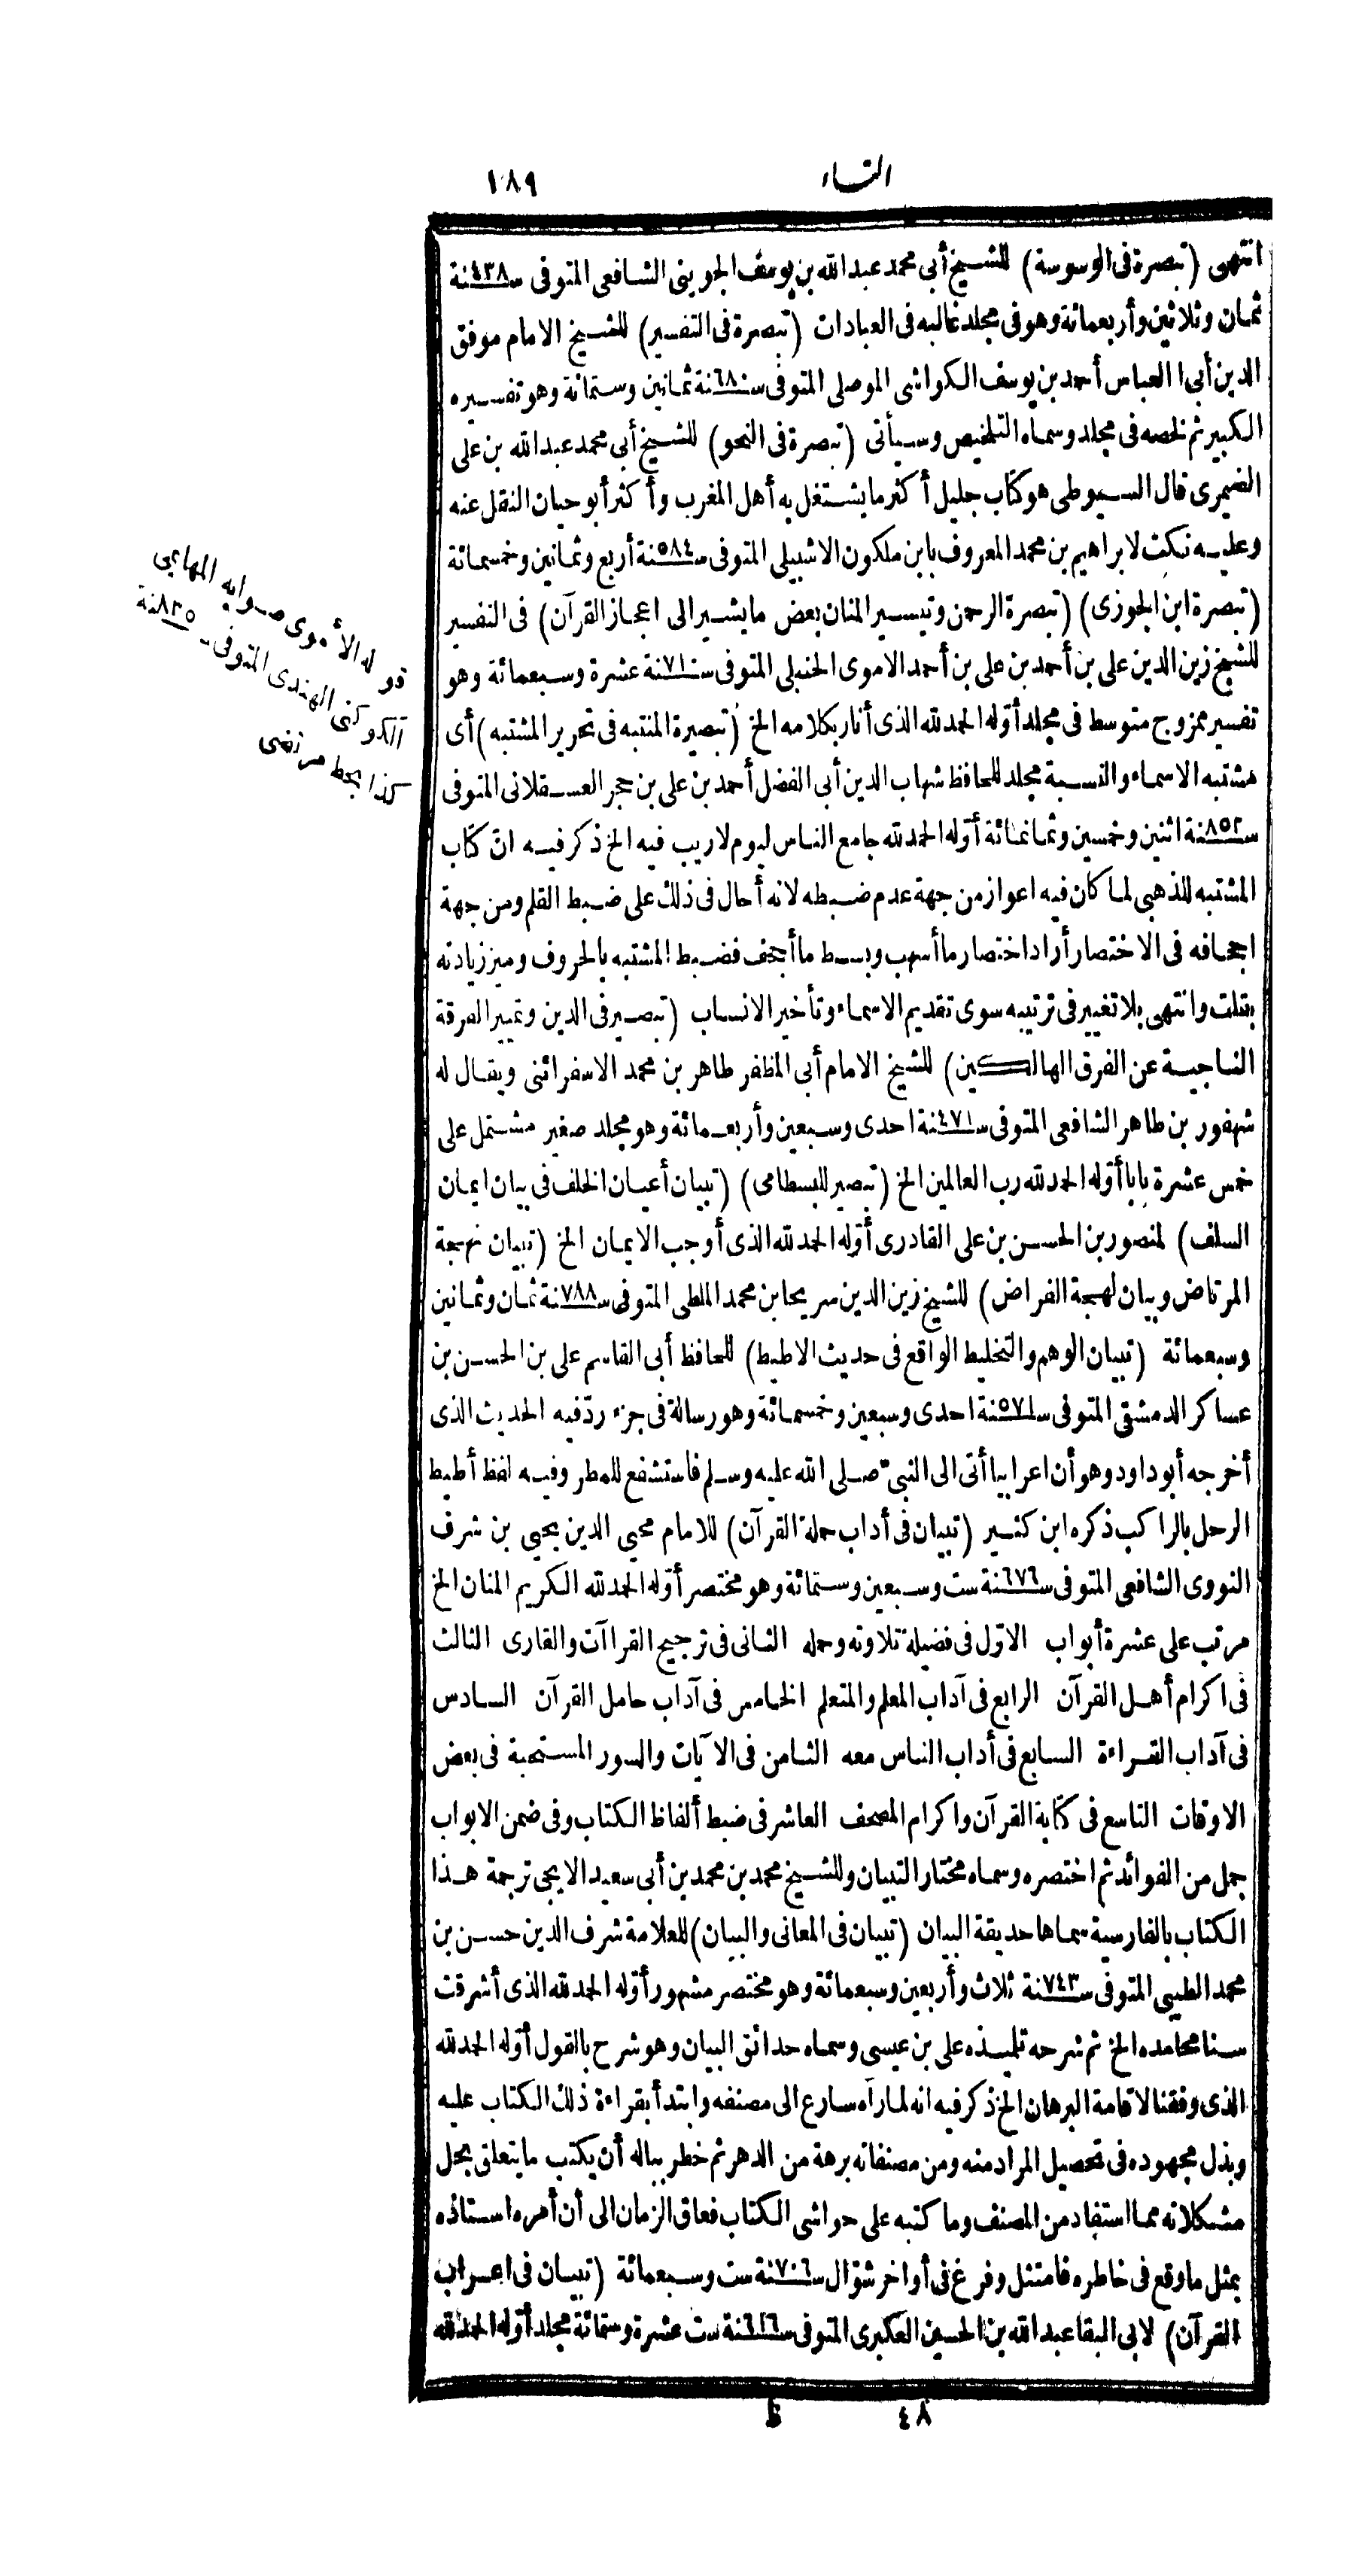 التاء
١٨٩
انتهى (تبصرة فى الوسوسة) للشيخ أبى محمد عبد الله بن يوسف الجوينى الشافعى المتوفى سنة ٤٣٨
ثمان وثلاثين وأربعمائة وهو فى مجلد غالبه فى العبادات (تبصرة فى التفسير) للشيخ الامام موفق
الدين أبى العباس أحمد بن يوسف الكواشى الموصلى المتوفى سنة ٦٨٠ ثمانين وستمائة وهو تفسيره
الكبير ثم لخصه فى مجلد وسماه التلخيص وسيأتى (تبصرة فى النحو) للشيخ أبى محمد عبد الله بن على
الضيمرى قال السيوطى هو كتاب جليل أكثر ما يشتغل به أهل المغرب وأكثر أبو حيان النقل عنه
وعليه نكت لابراهيم بن محمد المعروف بابن ملكون الاشبيلى المتوفى سنة ٥٨٤ أربع وثمانين وخمسمائة
(تبصرة ابن الجوزى) (تبصرة الرحمن وتيسير المنان بعض ما يشير الى اعجاز القرآن) فى التفسير
للشيخ زين الدين على بن أحمد بن على بن أحمد الاموى الحنبلى المتوفى سنة ٧١٠ عشرة وسبعمائة وهو
تفسير ممزوج متوسط فى مجلد أوّله الحمد لله الذى أنار بكلامه الخ (تبصيرة المنتبه فى تحرير المشتبه) أى
مشتبه الاسماء والنسبة مجلد للحافظ شهاب الدين أبى الفضل أحمد بن على بن حجر العسقلانى المتوفى
سنة ٨٥٢ اثنين وخمسين وثمانمائة أوّله الحمد لله جامع الناس ليوم لا ريب فيه الخ ذكر فيه انّ كتاب
المشتبه للذهبى لما كان فيه اعواز من جهة عدم ضبطه لانه أحال فى ذلك على ضبط القلم ومن جهة
اجحافه فى الاختصار أراد اختصار ما أسهب وبسط ما أجحف فضبط المشتبه بالحروف وميز زيادته
بقلت وانتهى بلا تغيير فى ترتيبه سوى تقديم الاسماء وتأخير الانساب (تبصير فى الدين وتمييز الفرقة
الناجية عن الفرق الهالكين) للشيخ الامام أبى المظفر طاهر بن محمد الاسفرائنى ويقال له
شهفور بن طاهر الشافعى المتوفى سنة ٤٧١ احدى وسبعين وأربعمائة وهو مجلد صغير مشتمل على
خمس عشرة بابا أوّله الحمد لله رب العالمين الخ (تبصير للبسطامى) (تبيان أعيان الخلف فى بيان ايمان
السلف) لمنصور بن الحسن بن على القادرى أوّله الحمد لله الذى أوجب الايمان الخ (تبيان نهجة
المرتاض وبيان لهجة الفراض) للشيخ زين الدين سريحا بن محمد الملطى المتوفى سنة ٧٨٨ ثمان وثمانين
وسبعمائة (تبيان الوهم والتخليط الواقع فى حديث الاطيط) للحافظ أبى القاسم على بن الحسن بن
عساكر الدمشقى المتوفى سنة ٥٧١ احدى وسبعين وخمسمائة وهو رسالة فى جزء ردّ فيه الحديث الذى
أخرجه أبو داود وهو أن اعرابيا أتى الى النبىّ صلى الله عليه وسلم فاستشفع للمطر وفيه لفظ أطيط
الرحل بالراكب ذكره ابن كثير (تبيان فى أداب حملة القرآن) للامام محيى الدين يحيى بن شرف
النووى الشافعى المتوفى سنة ٦٧٦ ست وسبعين وستمائة وهو مختصر أوّله الحمد لله الكريم المنان الخ
مرتب على عشرة أبواب الاوّل فى فضيلة تلاوته وحمله الثانى فى ترجيح القراآت والقارى الثالث
فى اكرام أهل القرآن الرابع فى آداب المعلم والمتعلم الخامس فى آداب حامل القرآن السادس
فى آداب القراءة السابع فى أداب الناس معه الثامن فى الآيات والسور المستحبة فى بعض
الاوقات التاسع فى كتابة القرآن واكرام المصحف العاشر فى ضبط ألفاظ الكتاب وفى ضمن الابواب
جمل من الفوائد ثم اختصره وسماه مختار التبيان وللشيخ محمد بن محمد بن أبى سعيد الايجى ترجمة هذا
الكتاب بالفارسية سماها حديقة البيان (تبيان فى المعانى والبيان) للعلامة شرف الدين حسن بن
محمد الطيبى المتوفى سنة ٧٤٣ ثلاث وأربعين وسبعمائة وهو مختصر مشهور أوّله الحمد لله الذى أشرقت
سنا محامده الخ ثم شرحه تلميذه على بن عيسى وسماه حدائق البيان وهو شرح بالقول أوّله الحمد لله
الذى وفقنا لاقامة البرهان الخ ذكر فيه انه لما رآه سارع الى مصنفه وابتدأ بقراءة ذلك الكتاب عليه
وبذل مجهوده فى تحصيل المراد منه ومن مصنفاته برهة من الدهر ثم خطر بباله أن يكتب ما يتعلق بحل
مشكلاته مما استفاد من المصنف وما كتبه على حواشى الكتاب فعاق الزمان الى أن أمره استاذه
بمثل ما وقع فى خاطره فامتثل وفرغ فى أواخر شوّال سنة ٧٠٦ ست وسبعمائة (تبيان فى اعراب
القرآن) لابى البقا عبد الله بن الحسين العكبرى المتوفى سنة ٦١٦ ست عشرة وستمائة مجلد أوّله الحمد لله
قوله الأموى صوابه المهايمى
الكوكنى الهندى المتوفى سنة ٨٣٥
كذا بخط مرتضى
٤٨
ظ